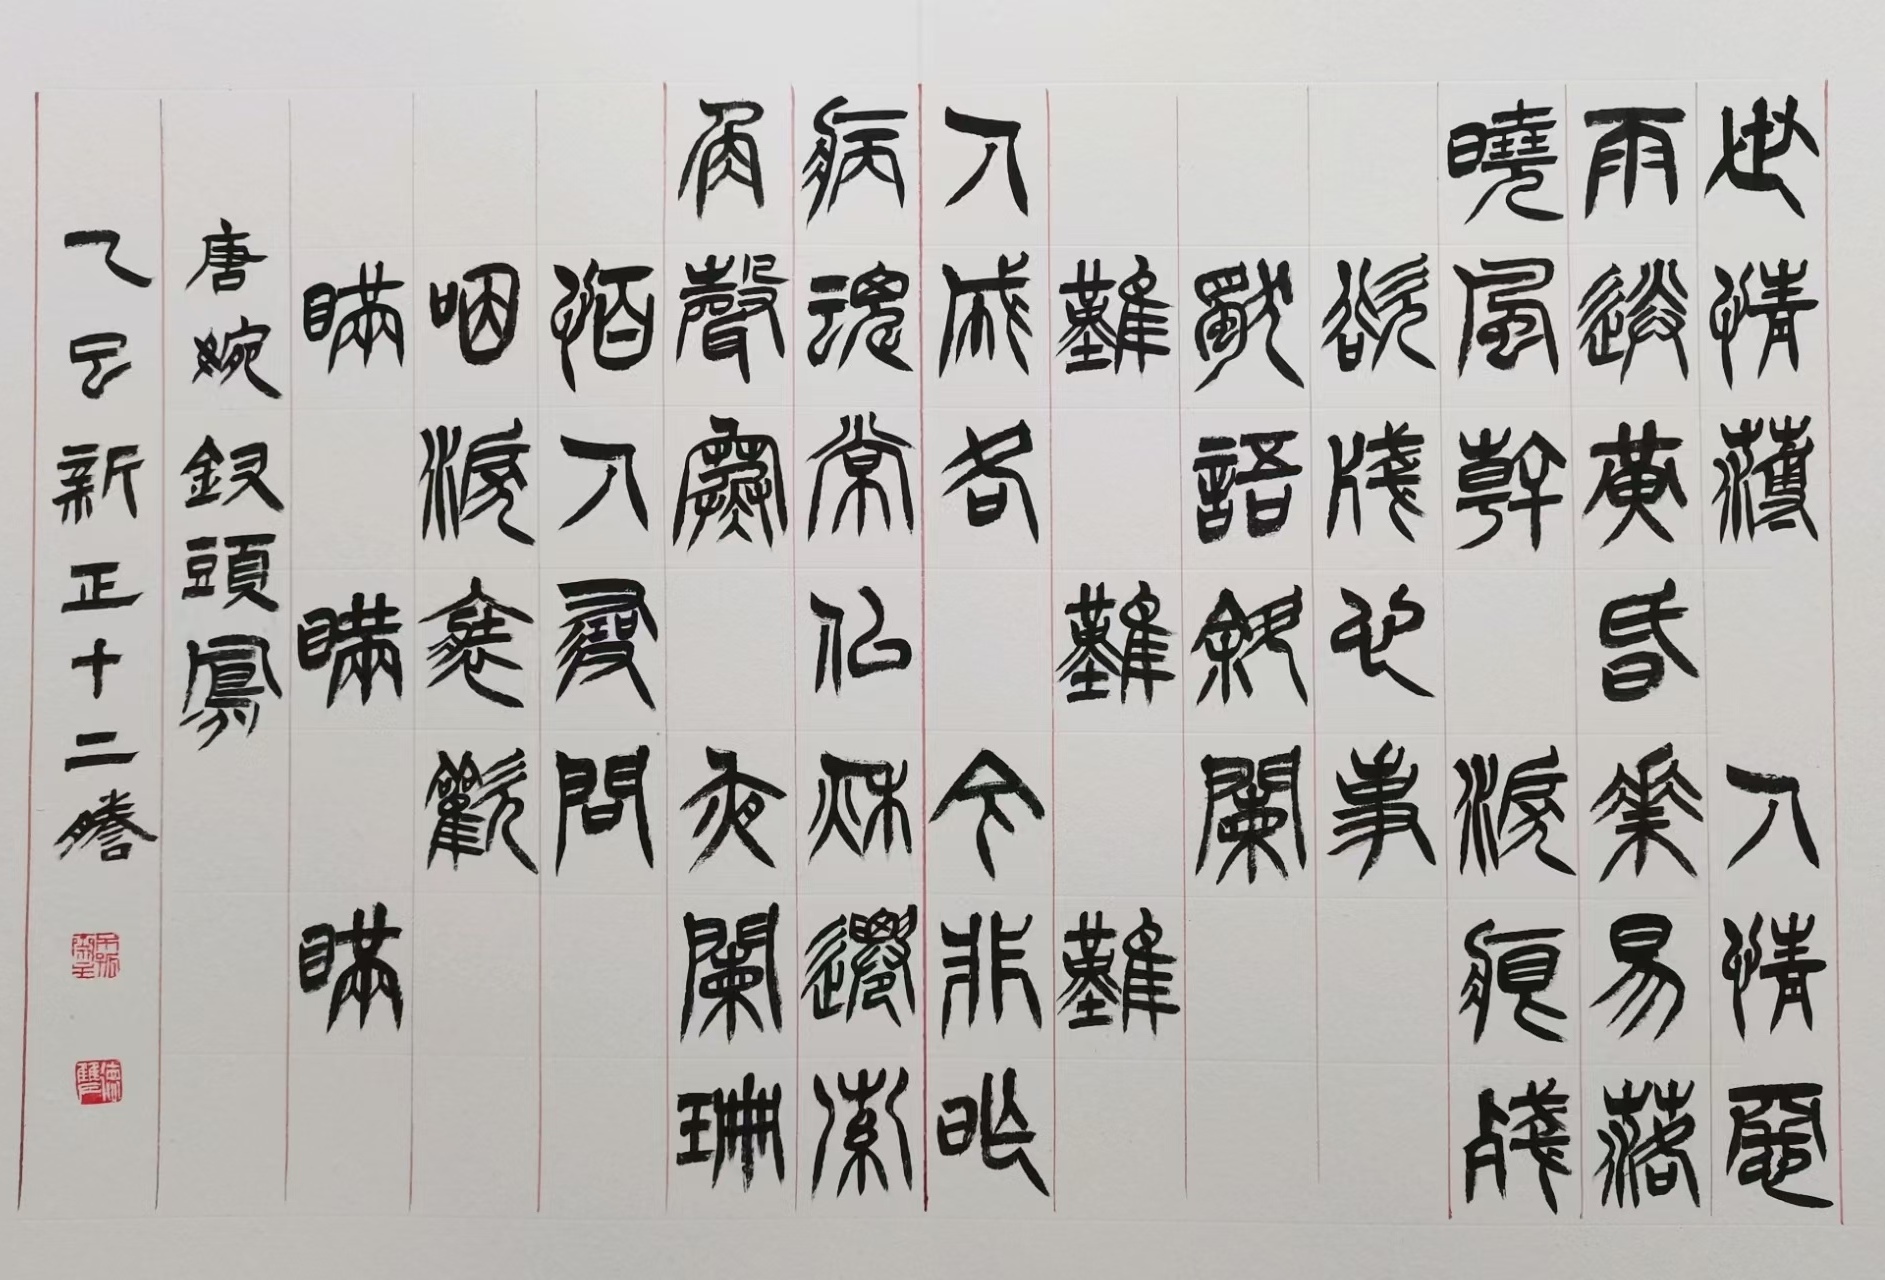 世情薄 人情惡
雨送黃昏花易落
曉風乾 淚痕殘
欲牋心事
獨語斜闌
難 難 難
人成各 今非昨
病魂常佀秋遷索
角聲寒 夜闌珊
怕人尋問
咽淚裝歡
瞞 瞞 瞞
唐婉釵頭鳳
乙巳新正十二謄